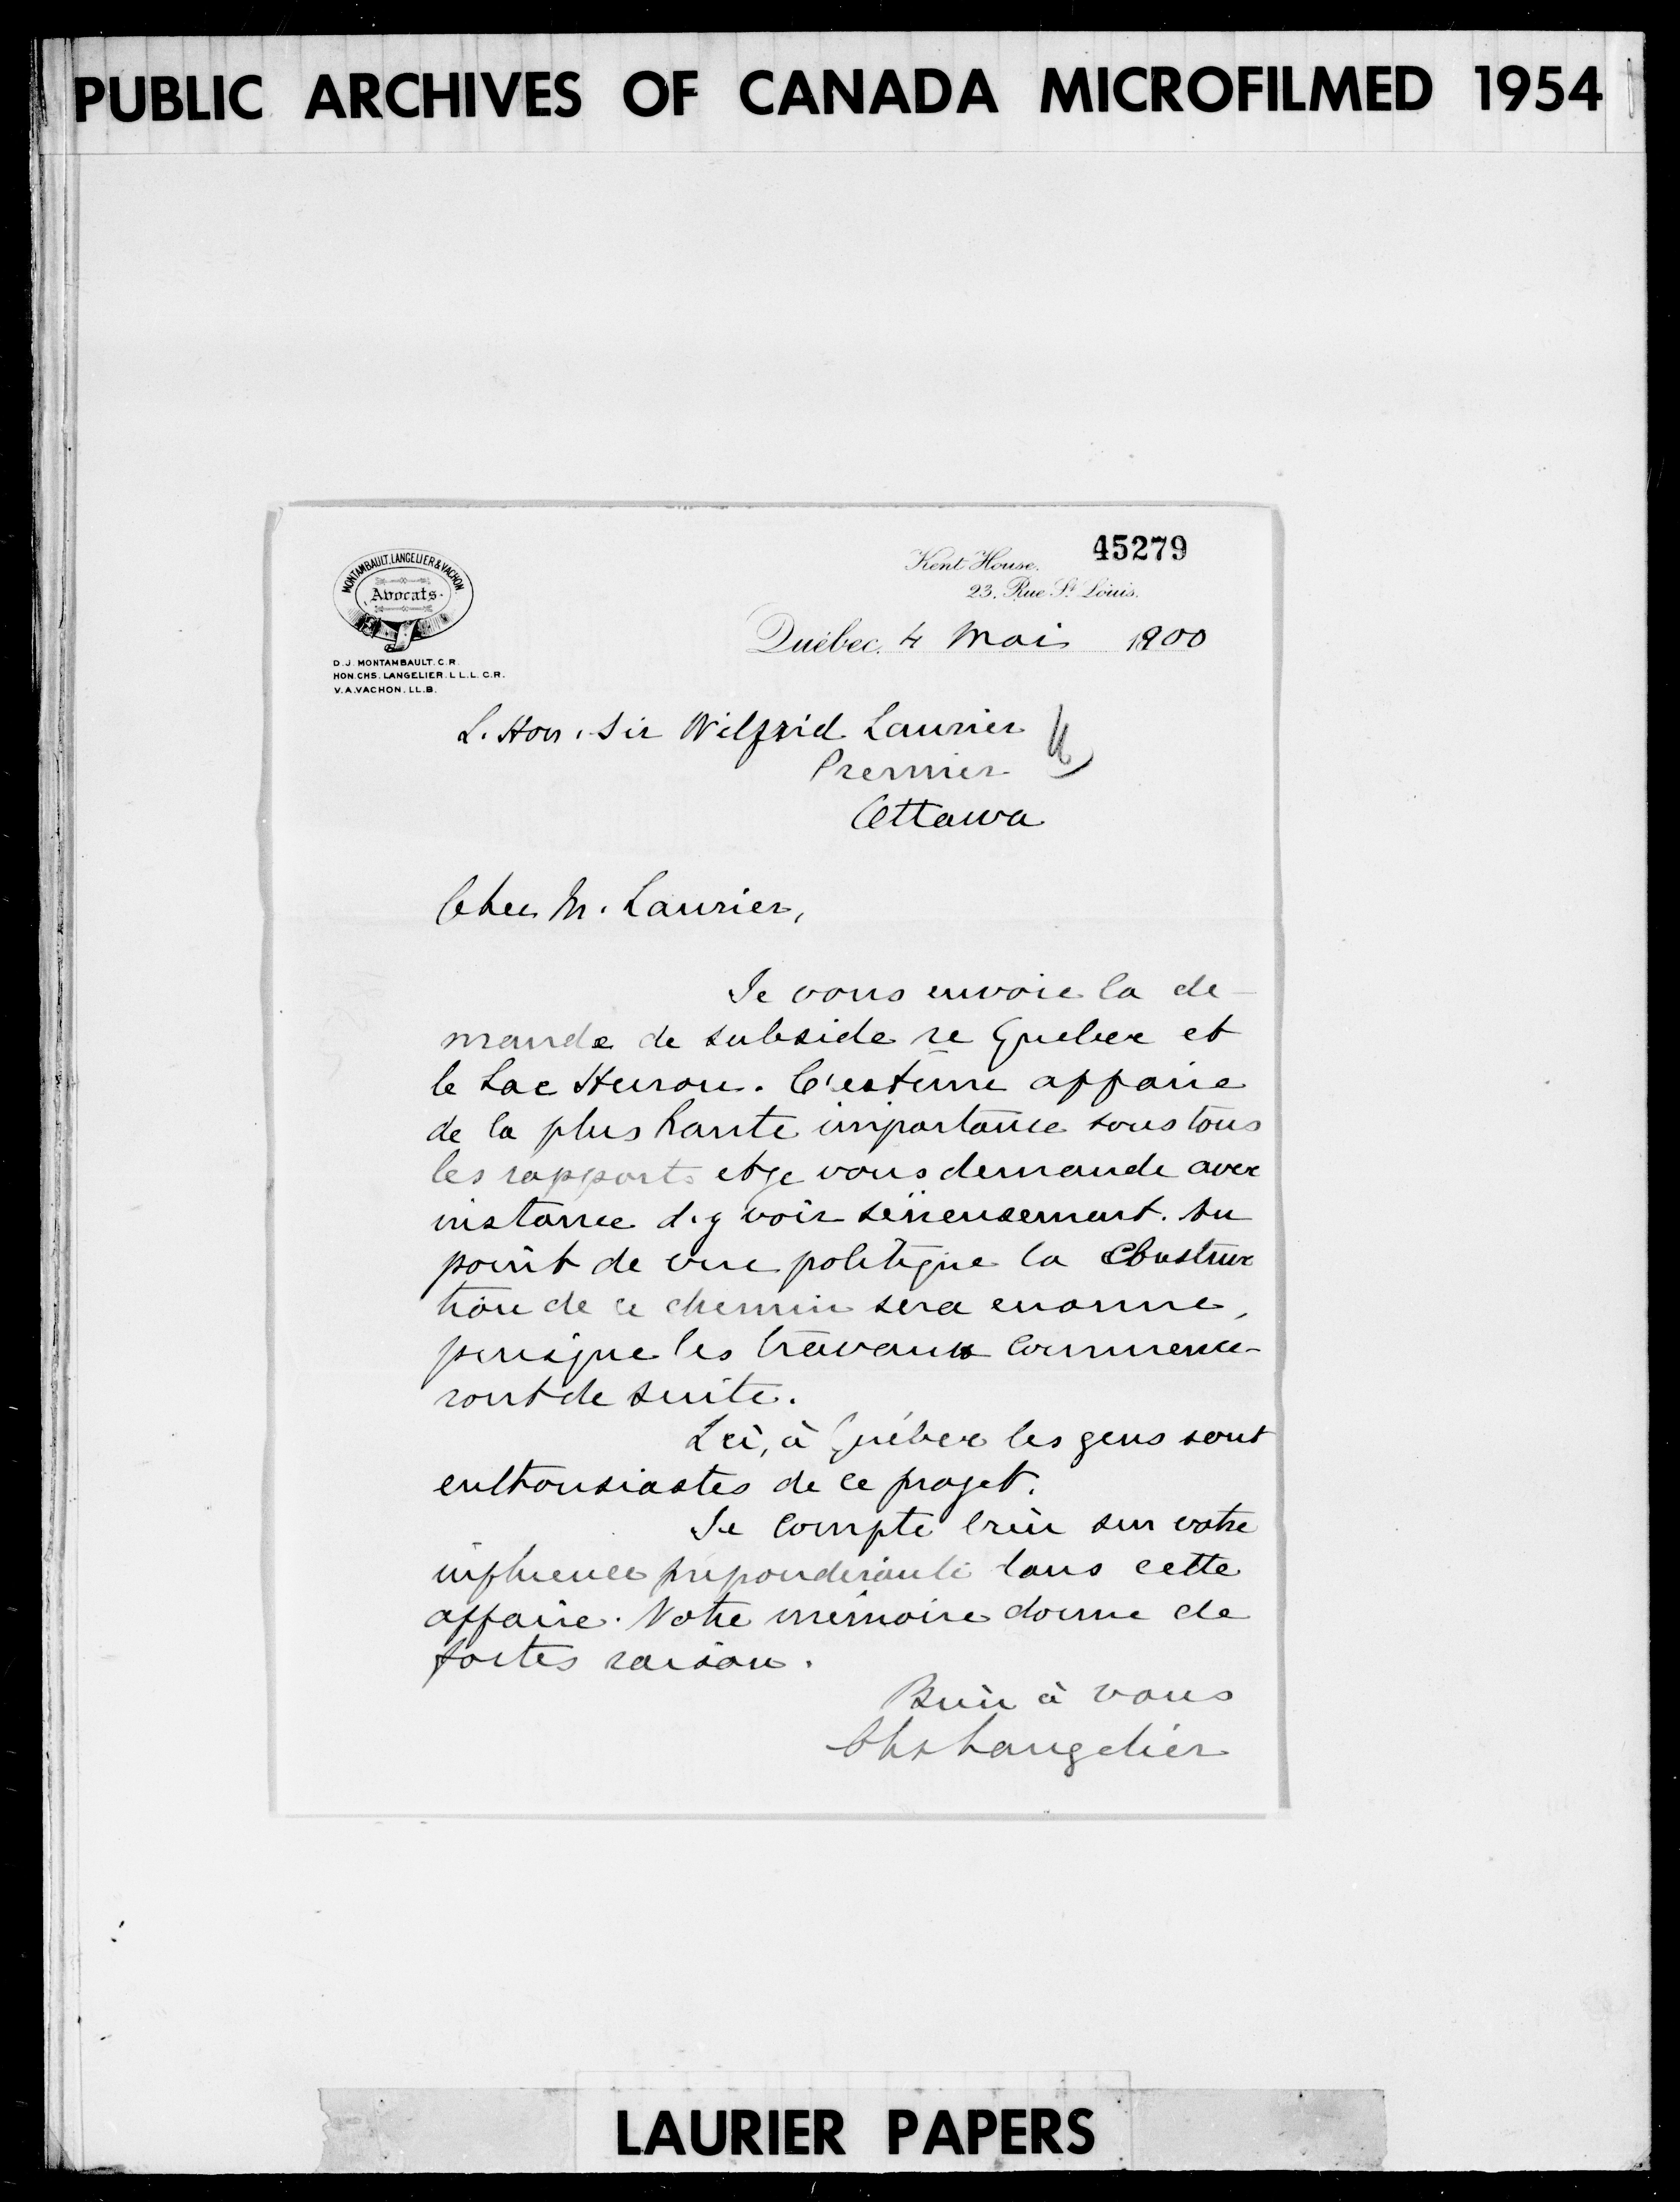 PUBLIC ARCHIVES OF CANADA MICROFILMED 1954
45279
MONTAMBAULT, LANGELIER & VACHON
Avocats.
D.J. MONTAMBAULT. C.R.
HON. CHS. LANGELIER. L.L.L. C.R.
V.A. VACHON. LL.B.
Kent House.
23, Rue St Louis.
Québec, 4 Mai 1900
L. Hon. Sir Wilfrid Laurier
Premier
Ottawa
Cher M. Laurier,
Je vous envoie la de-
mande de subside re Quebec et
le Lac Huron. C'est une affaire
de la plus haute importance sous tous
les rapports et je vous demande avec
instance d'y voir sérieusement. Au
point de vue politique la construc
tion de ce chemin sera enorme,
puisque les travaux commence-
ront de suite.
Ici, à Québec les gens sont
enthousiastes de ce projet.
Je compte bien sur votre
influence prépondérante dans cette
affaire. Notre mémoire donne de
fortes raison.
Bien à vous
Chs Langelier
LAURIER PAPERS